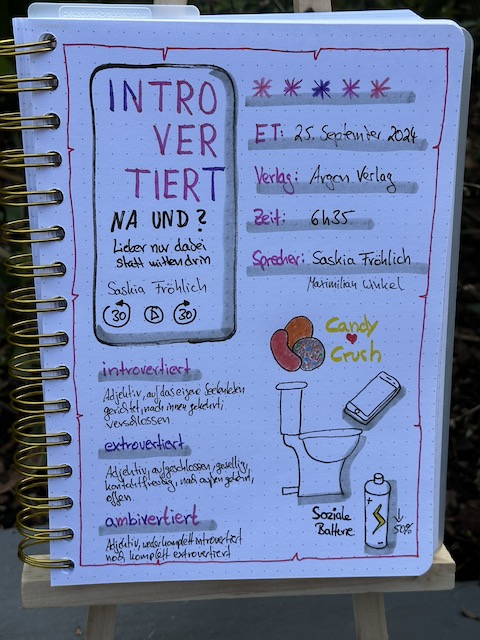 INTRO
VER
TIERT
NA UND?
Lieber nur dabei
statt mittendrin
Saskia Fröhlich
30 30
ET: 25. September 2024
Verlag: Argon Verlag
Zeit: 6h35
Sprecher: Saskia Fröhlich
Maximilian Winkel
Candy
Crush
introvertiert
Adjektiv, auf das eigene Seelenleben
gerichtet, nach innen gekehrt,
verschlossen
extrovertiert
Adjektiv, aufgeschlossen, gesellig,
kontaktfreudig, nach außen gekehrt,
offen
ambivertiert
Adjektiv, weder komplett introvertiert
noch komplett extrovertiert
Soziale
Batterie
50%